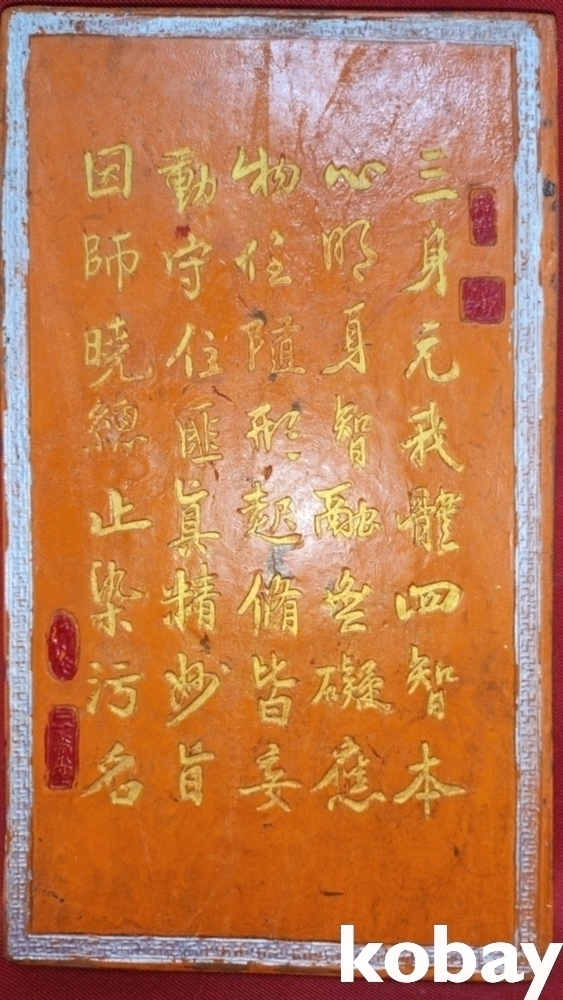 三身元我體四智本
心明身智融無礙應
物任隨形起修皆妄
動守住匪真精妙旨
因師曉總止染污名
kobay